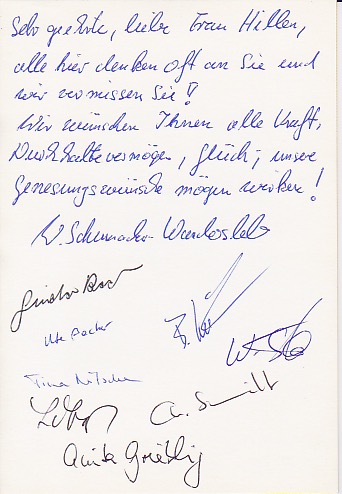 Sehr geehrte, liebe Frau Hillen,
alle hier denken oft an Sie und
wir vermissen Sie!
Wir wünschen Ihnen alle Kraft,
Durchhaltevermögen, Glück; unsere
Genesungswünsche mögen wirken!
W. Schumacher-Wandersleb
Ute Becker
Tina
A. Schmitt
Anita